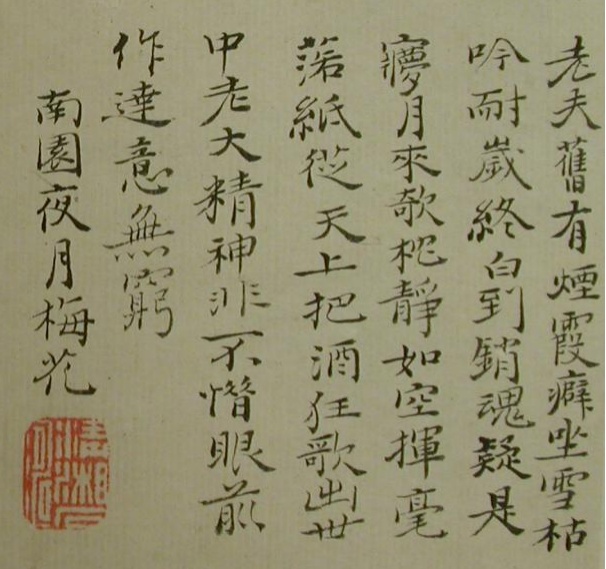 老夫舊有煙霞癖坐雪枯
吟耐歲終白到銷魂疑是
夢月來欹枕靜如空揮毫
落紙從天上把酒狂歌出世
中老大精神非不惜眼前
作達意無窮
南園夜月梅花